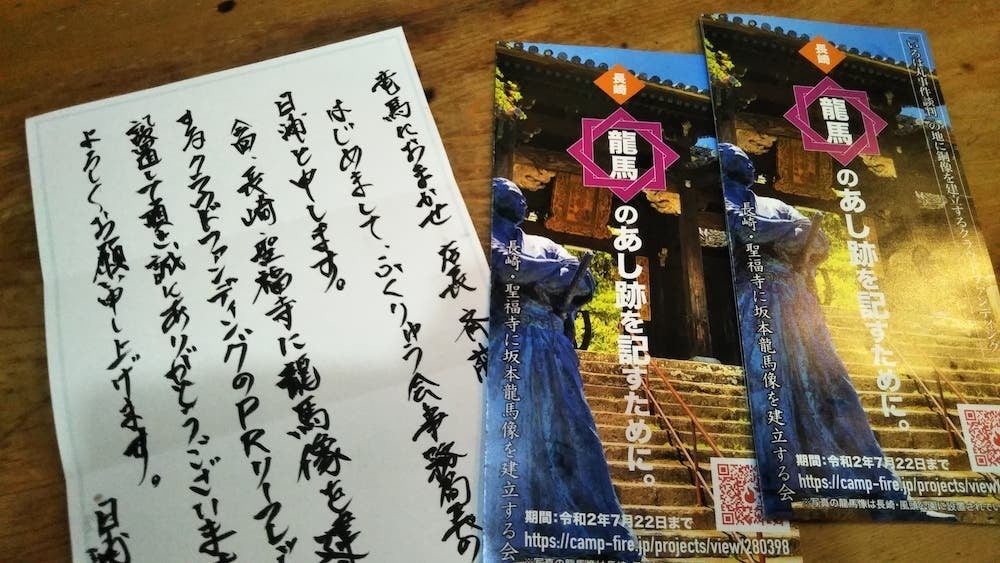 竜馬におまかせ 店長 斉藤
はじめまして、ふくりゅう会事務局長の
日浦と申します。
今回、長崎・聖福寺に龍馬像を建
するクラウドファンディングのPRリーフレッ
設置して頂き、誠にありがとうございま
よろしくお願申し上げます。
日浦
長崎
龍馬のあし跡を記すために。
長崎・聖福寺に坂本龍馬像を建立する会
期間：令和2年7月22日まで
https://camp-fire.jp/projects/view/280398
いろは丸事件談判の地に銅像を建立するク
ンディング
長崎
龍馬のあし跡を記すために。
長崎・聖福寺に坂本龍馬像を建立する会
期間：令和2年7月22日まで
https://camp-fire.jp/projects/view/
※写真の龍馬像は長崎・風頭公園に設置されてい